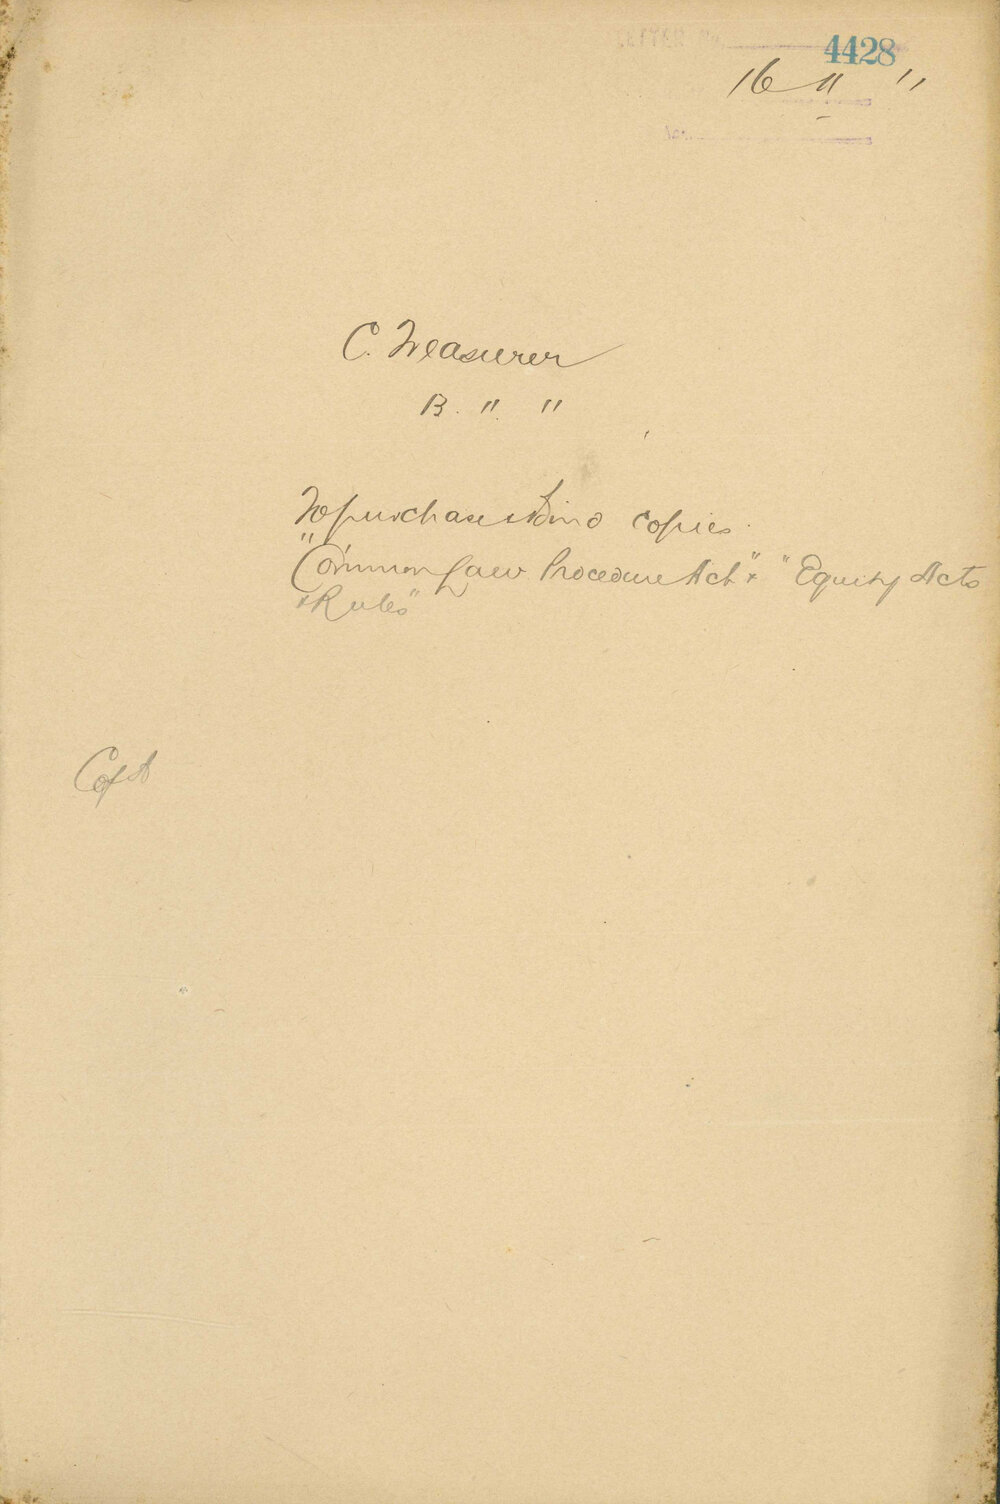 4428
16 " "
C. Treasurer
B. " "
To purchase & bind copies
"Common Law Procedure Act" & "Equity Acts
& Rules"
C of A